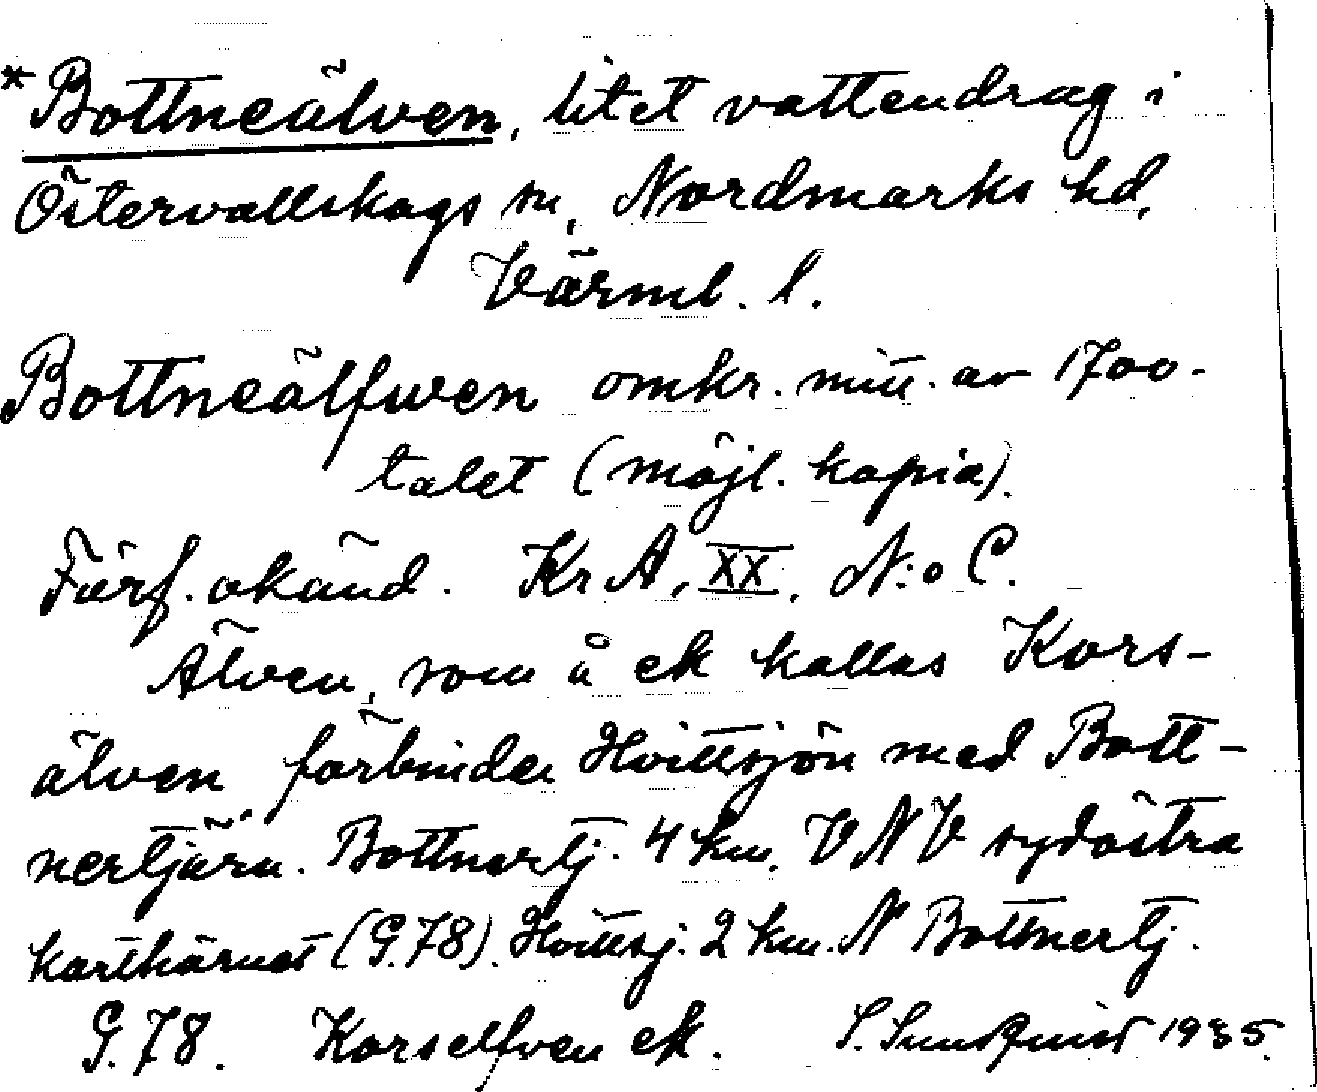 *Bottneälven, litet vattendrag i
Östervallskogs sn, Nordmarks hd,
Värml. l.
Bottneälfwen omkr. mitt. av 1700-
talet (möjl. kopia).
Förf. okänd. Kr A, XX, N:o C.
Älven, som å ek kallas Kors-
älven, förbinder Hvittsjön med Bott-
nertjärn. Bottnertj. 4 km. VNV sydöstra
karthörnet (G.78). Hvittsj. 2 km. N Bottnertj.
G.78. Korselfven ek. S. Sundquist 1935.